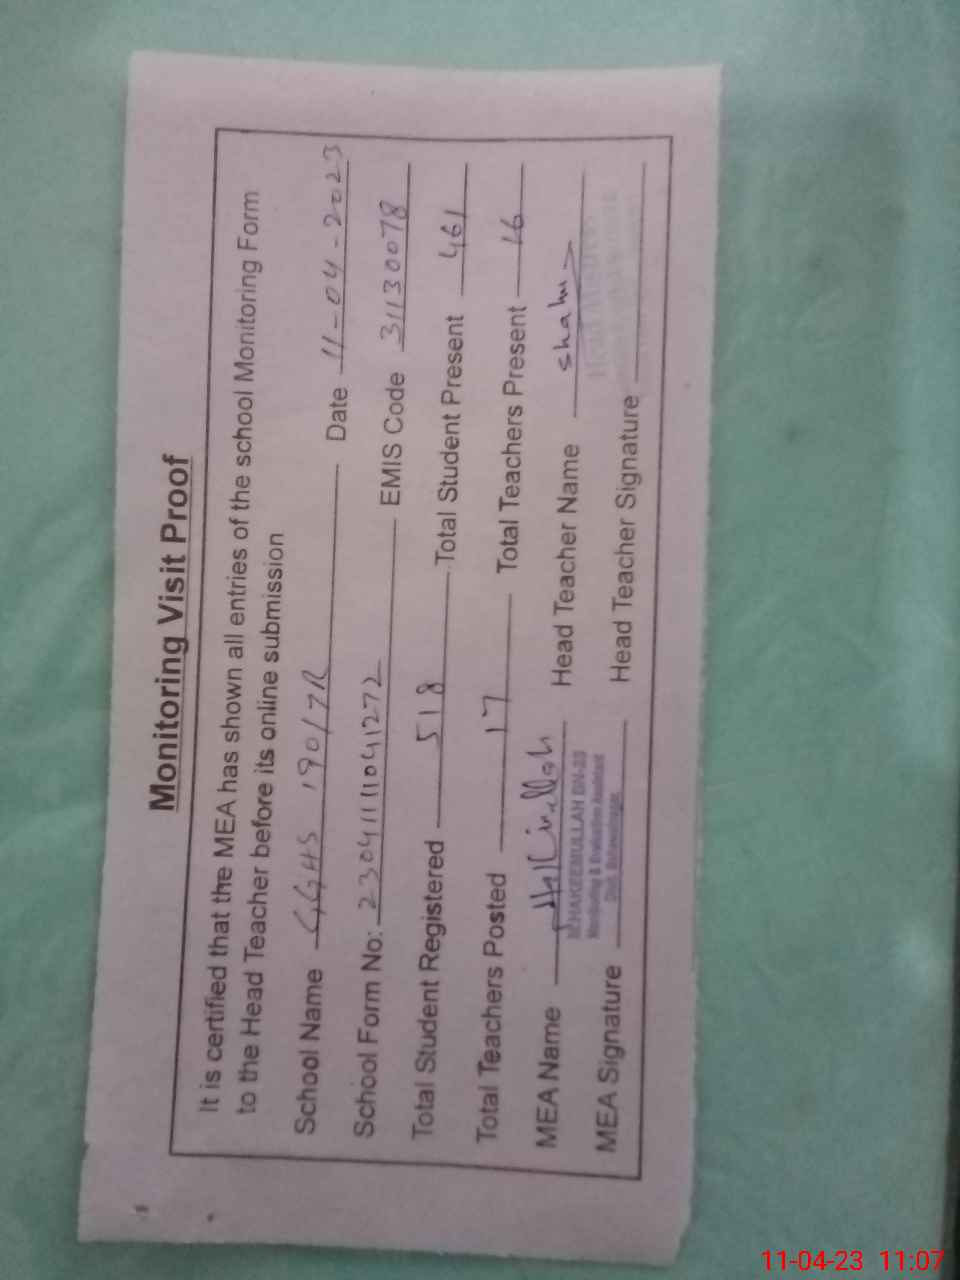 Monitoring Visit Proof
It is certified that the MEA has shown all entries of the school Monitoring Form
to the Head Teacher before its online submission
School Name GGHS 190/7R Date 11-04-2023
School Form No: 23041111041272 EMIS Code 31130078
Total Student Registered 518 Total Student Present 461
Total Teachers Posted 17 Total Teachers Present 16
MEA Name Head Teacher Name
HAKEEMULLAH
Monitoring & Evaluation Assistant
MEA Signature Head Teacher Signature
11-04-23 11:07